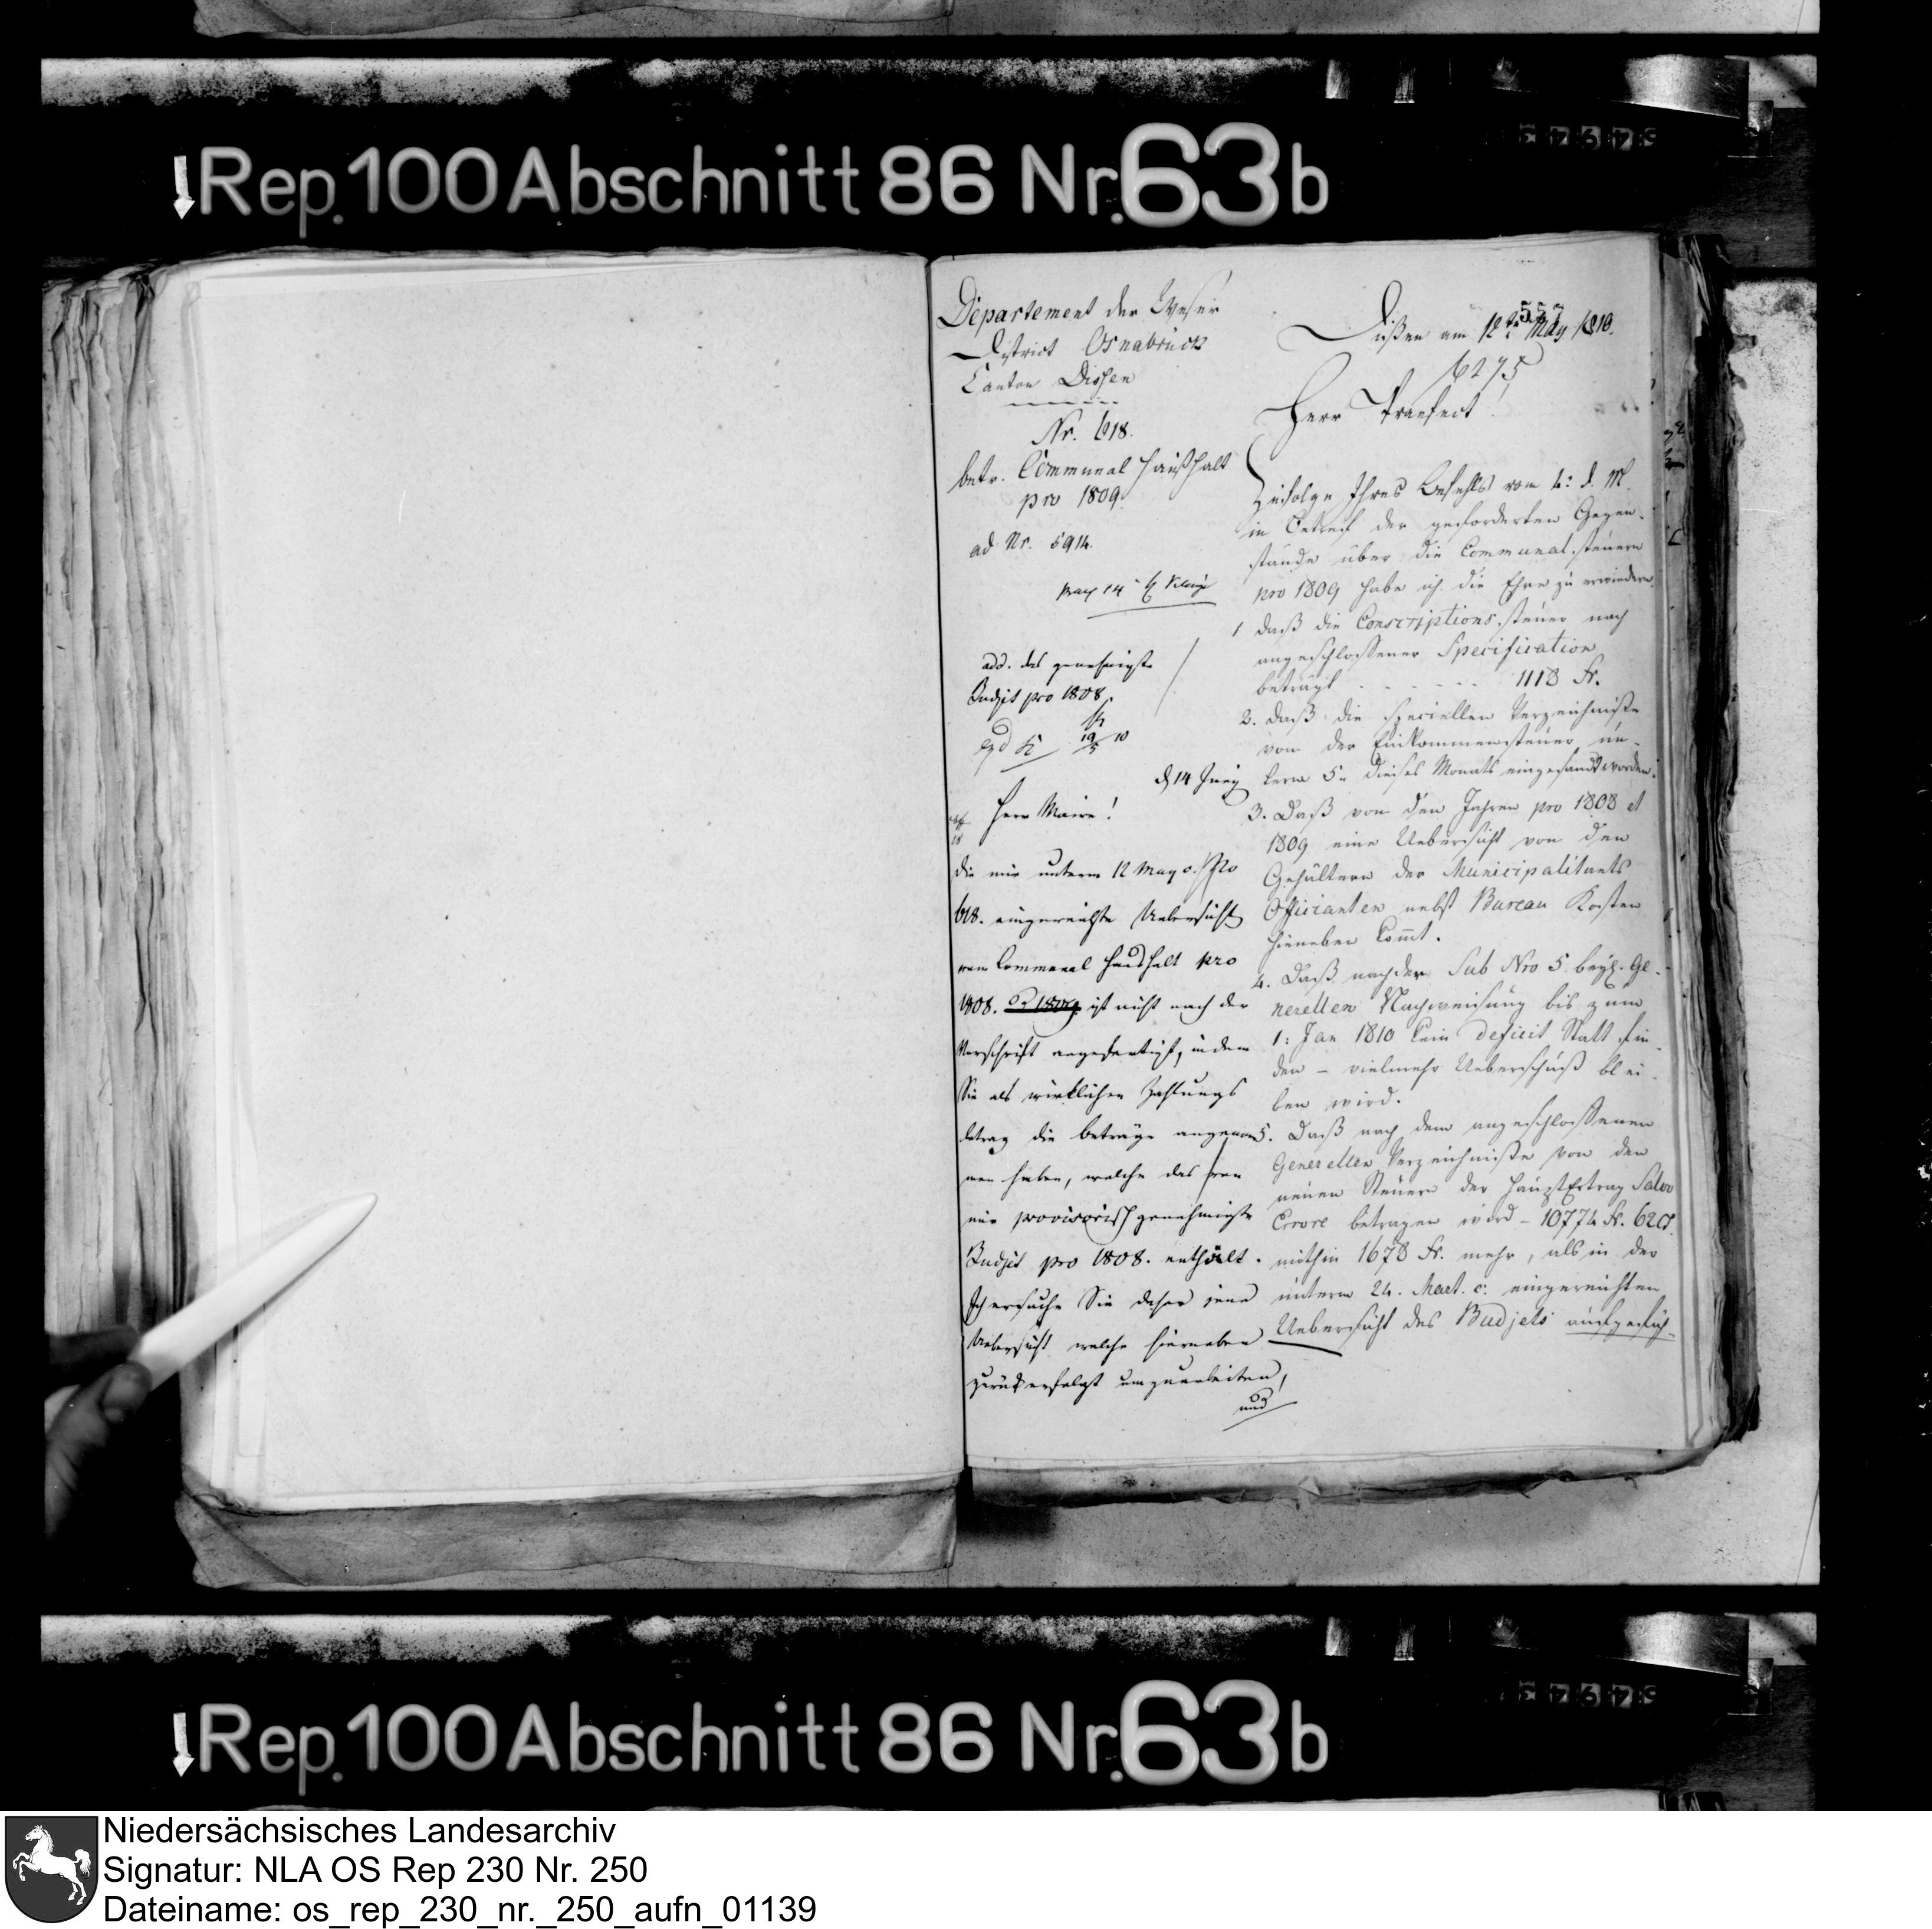 Rep. 100 Abschnitt 86 Nr. 63 b
Departement der Weser
District Osnabrück
Canton Dissen
Nr. 618.
betr. Communal Haußhalt
pro 1809.
ad Nr. 5914.
add. das genehmigte
Budjet pro 1808.
d 14 Juny
Herr Maire!
die mir unterm 12 May c. Nro
618. eingereichte Uebersicht
vom Communal Haushalt pro
1808. ist nicht nach der
Vorschrift angefertigt, indem
Sie als wirklichen Zahlungs
betrag die beträge angenom
men haben, welche das von
mir provisorisch genehmigte
Budjet pro 1808. enthält.
Ich ersuche Sie daher jene
Uebersicht welche hierneben
zurück erfolgt umzuarbeiten,
und
557
Dißen am 12ten May 1810.
6275
Herr Praefect!
Zufolge Ihres Befehls vom 4: d. M.
in Betreff der geforderten Gegen-
stände über die Communal steuern
pro 1809 habe ich die Ehre zu erwiedern
1 daß die Conscriptions steuer nach
angeschlossener Specification
beträgt - - - - - - 1118 Fr.
2. daß die speciellen Verzeichniße
von der Einkommensteuer un-
term 5n dieses Monats eingesandt worden.
3. Daß von den Jahren pro 1808 et
1809 eine Uebersicht von den
Gehältern der Municipalitaets
Officianten nebst Bureau Kosten
hieneben komt.
4. Daß nach der Sub Nro 5. beyg. Ge-
nerellen Nachweisung bis zum
1: Jan 1810 kein deficit Statt fin-
den - vielmehr Ueberschuß blei-
ben wird.
5. Daß nach dem angeschlossenen
Generellen Verzeichniße von den
neuen Steuern der Hauptertrag Salvo
Errore betragen wird - 10774 Fr. 62 C.
mithin 1678 Fr. mehr, als in der
unterm 24. Mart. c. eingereichten
Uebersicht des Budjets aufgefüh-
Rep. 100 Abschnitt 86 Nr. 63 b
Niedersächsisches Landesarchiv
Signatur: NLA OS Rep 230 Nr. 250
Dateiname: os_rep_230_nr._250_aufn_01139